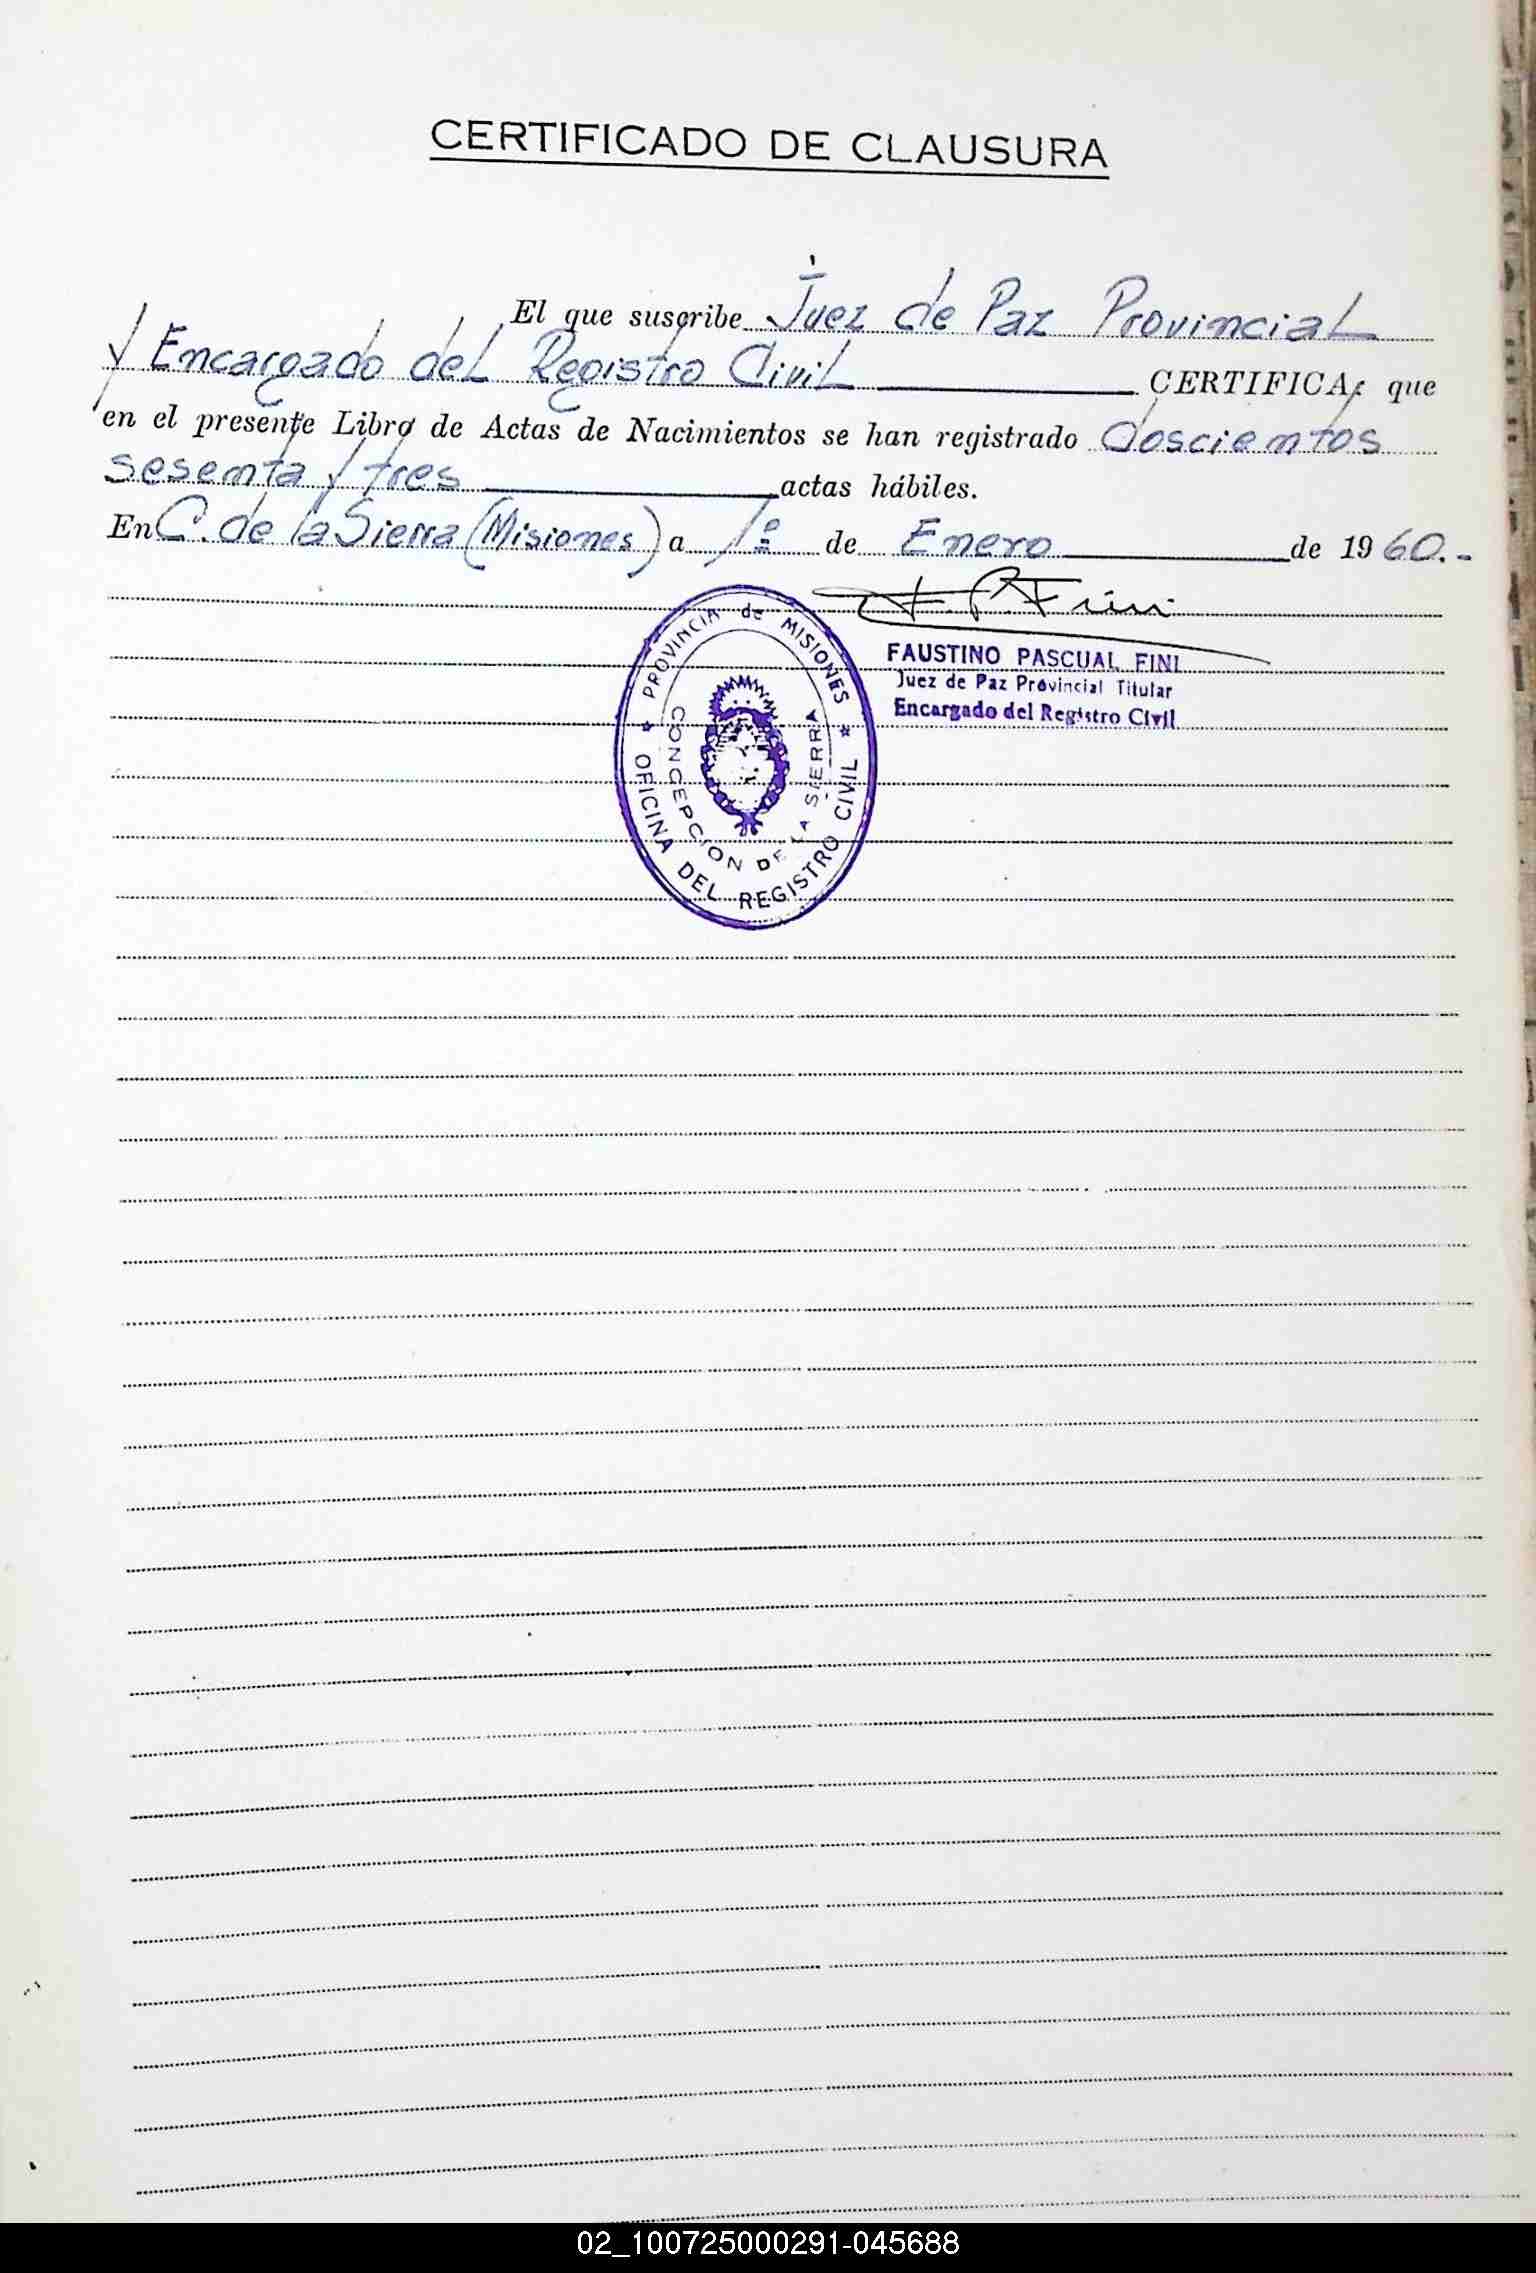 CERTIFICADO DE CLAUSURA
El que suscribe Juez de Paz Provincial
y Encargado del Registro Civil CERTIFICA: que
en el presente Libro de Actas de Nacimientos se han registrado doscientos
sesenta y tres actas hábiles.
En C. de la Sierra (Misiones) a 1º de Enero de 1960.-
F. P. Fini
FAUSTINO PASCUAL FINI
Juez de Paz Provincial Titular
Encargado del Registro Civil
PROVINCIA de MISIONES
CONCEPCION DE LA SIERRA
OFICINA DEL REGISTRO CIVIL
02_100725000291-045688